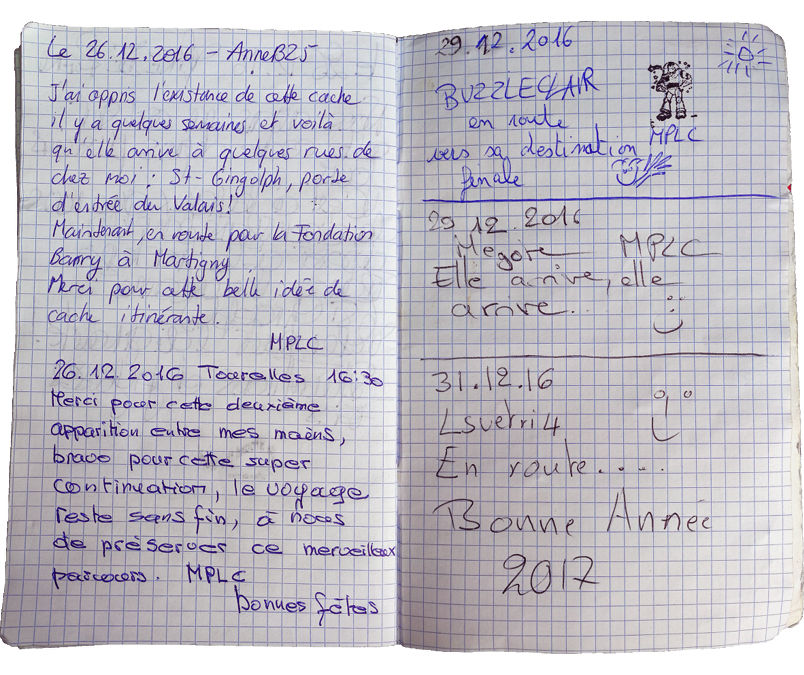 Le 26.12.2016 - AnneB25
J'ai appris l'existance de cette cache
il y a quelques semaines et voilà
qu'elle arrive à quelques rues de
chez moi : St-Gingolph, porte
d'entrée du Valais!
Maintenant, en route pour la Fondation
Barry à Martigny
Merci pour cette belle idée de
cache itinérante.
MPLC
26.12.2016 Tourelles 16:30
Merci pour cette deuxième
apparition entre mes mains,
bravo pour cette super
continuation, le voyage
reste sans fin, à nous
de préserver ce merveilleux
parcours. MPLC
bonnes fêtes
29.12.2016
BUZZLECLAIR
en route
MPLC
vers sa destination
finale
29.12.2016
Megore MPLC
Elle arrive, elle
arrive..
31.12.16
Lsuetri4
En route.....
Bonne Année
2017